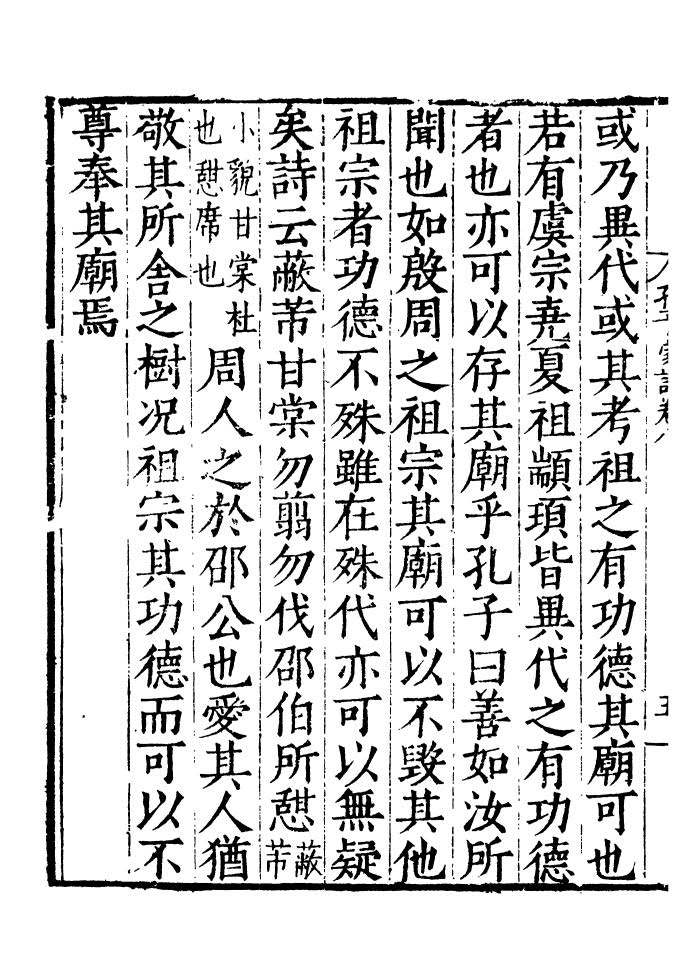 或乃異代或其考祖之有功德其廟可也
若有虞宗堯夏祖顓頊皆異代之有功德
者也亦可以存其廟乎孔子曰善如汝所
聞也如殷周之祖宗其廟可以不毀其他
祖宗者功德不殊雖在殊代亦可以無疑
矣詩云蔽芾甘棠勿翦勿伐邵伯所憇蔽芾
小貌甘棠杜也憇席也周人之於邵公也愛其人猶
敬其所舍之樹況祖宗其功德而可以不
尊奉其廟焉